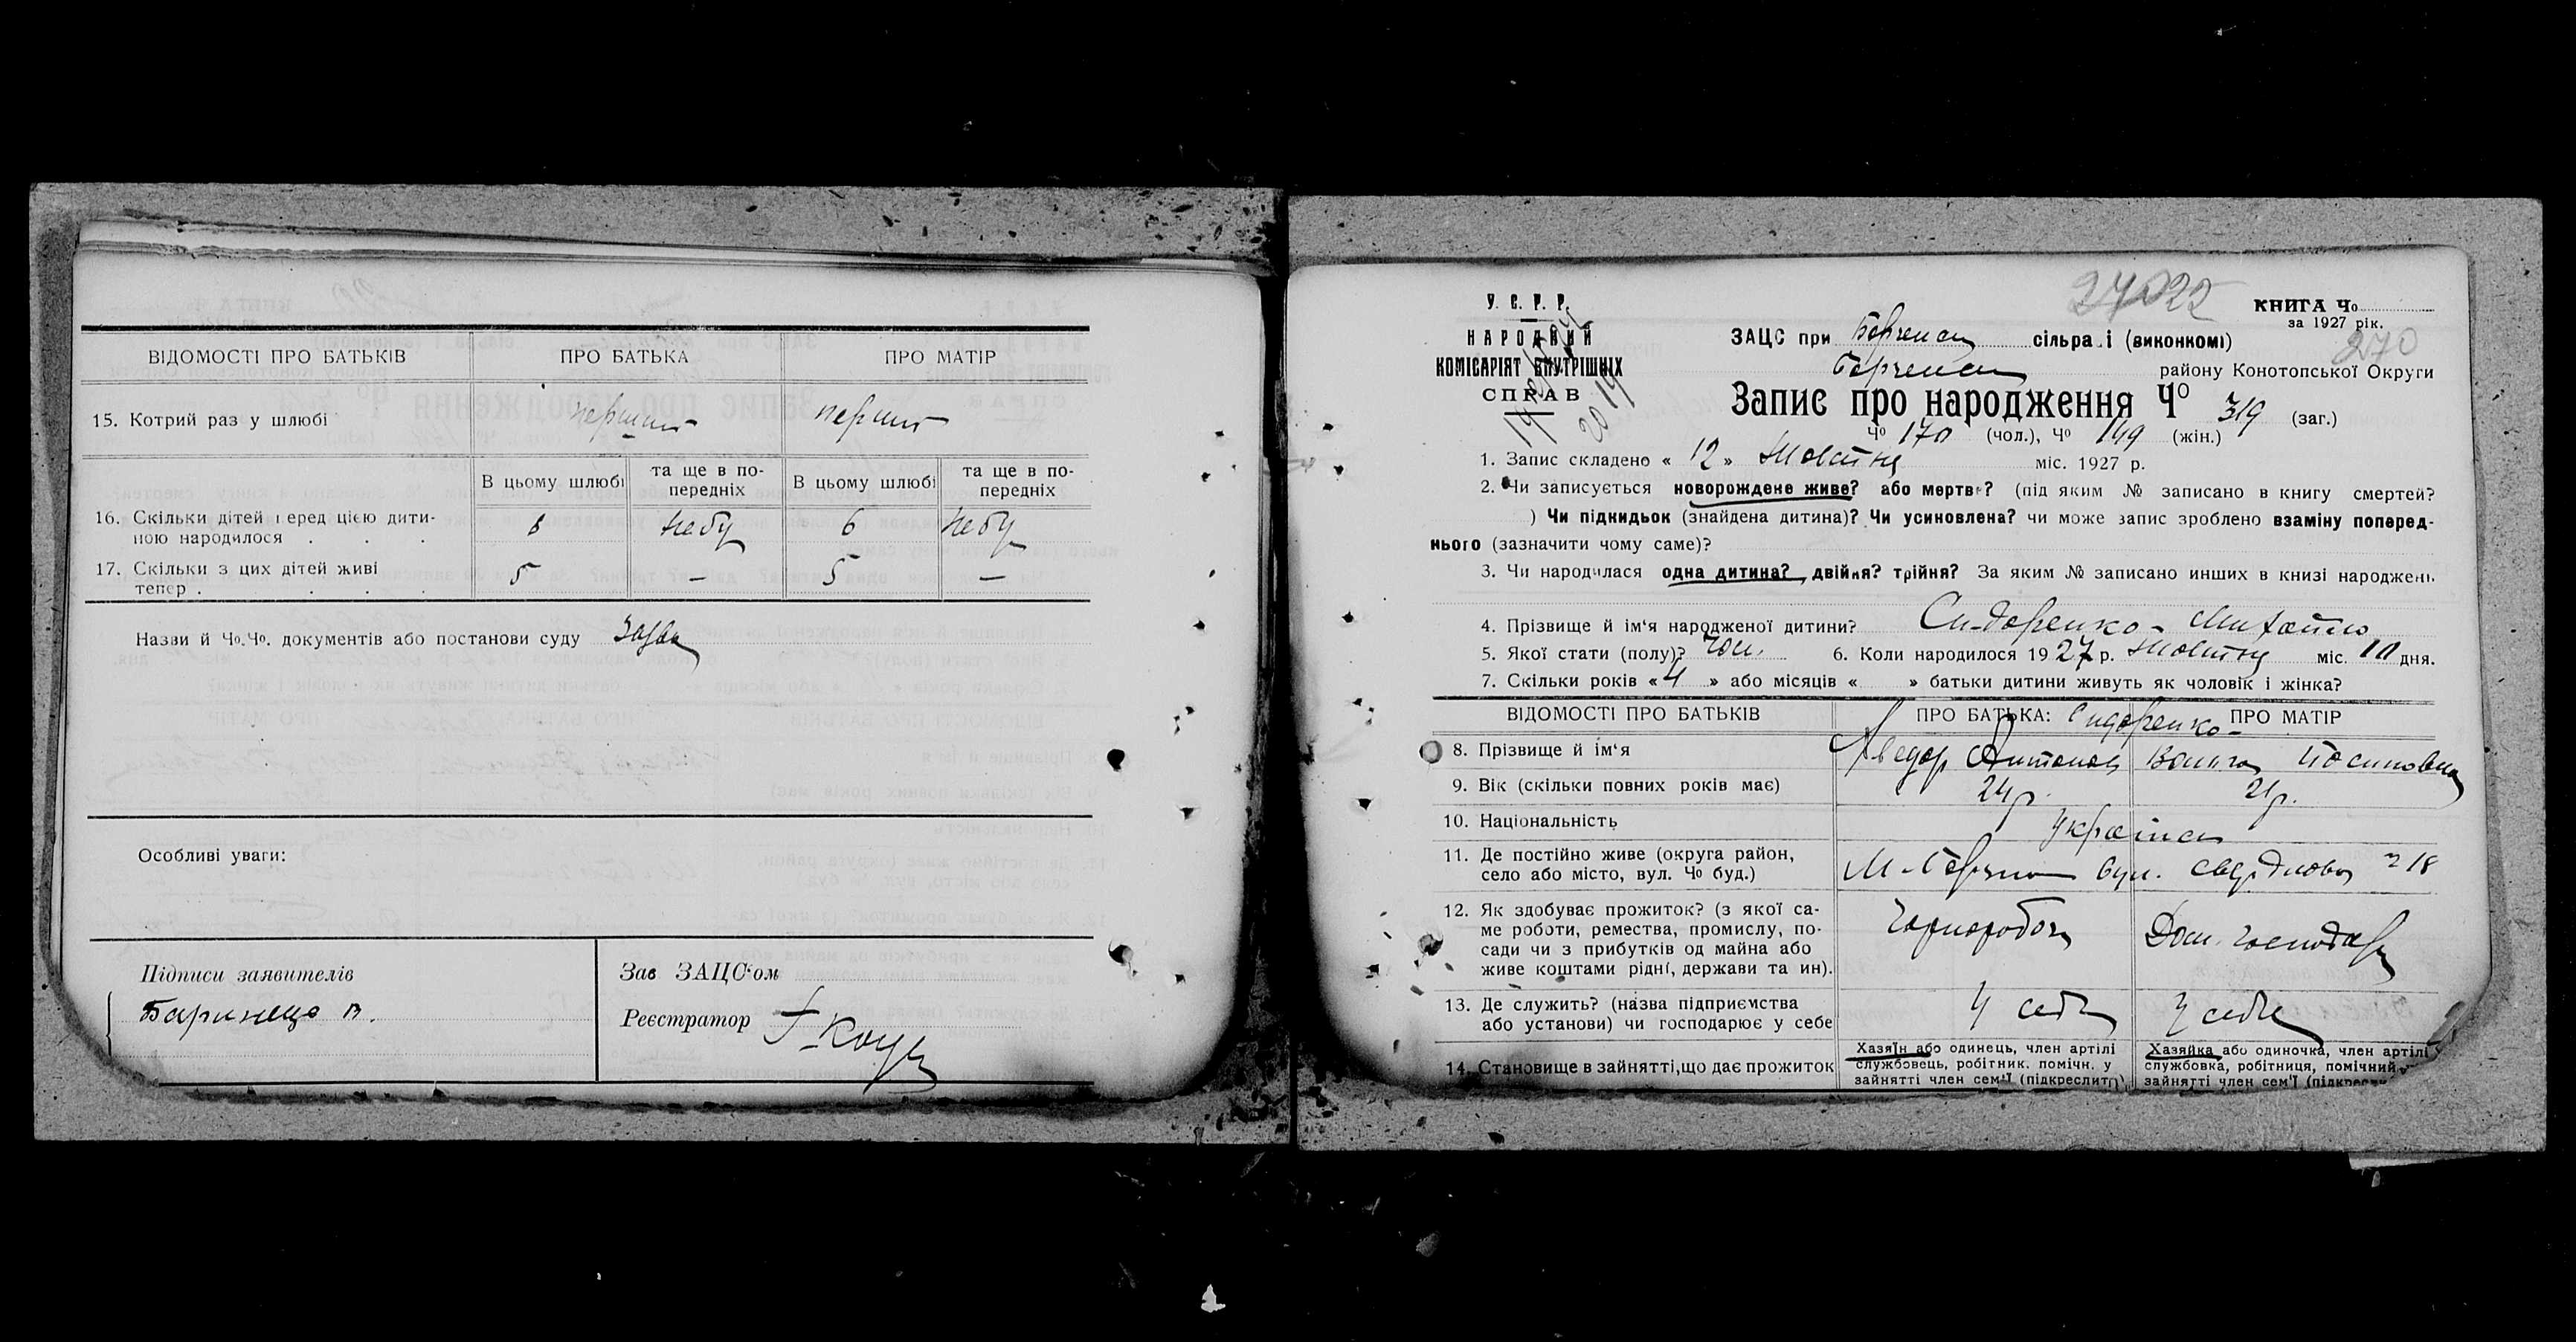 ВІДОМОСТІ ПРО БАТЬКІВ ПРО БАТЬКА ПРО МАТІР
15. Котрий раз у шлюбі перший перший
В цьому шлюбі та ще в попередніх В цьому шлюбі та ще в попередніх
16. Скільки дітей перед цією дити-
ною народилося . . . 6 небу 6 небу
17. Скільки з цих дітей живі
тепер . . . . 5 — 5 —
Назви й Чо.Чо. документів або постанови суду заява
Особливі уваги:
Підписи заявителів
Зав ЗАЦС'ом
Реєстратор
У. С. Р. Р.
НАРОДНИЙ
КОМІСАРІЯТ ВНУТРІШНІХ
СПРАВ
КНИГА Чо
за 1927 рік.
270
ЗАЦС при сільраді (виконкомі)
району Конотопської Округи
Запис про народження Чо 319 (заг.)
Чо 170 (чол.), Чо 149 (жін.)
1. Запис складено « 12 » Жовтня міс. 1927 р.
2. Чи записується новорождене живе? або мертве? (під яким № записано в книгу смертей?
) Чи підкидьок (знайдена дитина)? Чи усиновлена? чи може запис зроблено взаміну поперед-
нього (зазначити чому саме)?
3. Чи народилася одна дитина? двійня? трійня? За яким № записано инших в книзі народжень
4. Прізвище й ім'я народженої дитини? Сидоренко - Михайло
5. Якої стати (полу)? чол. 6. Коли народилося 1927 р. Жовтня міс. 10 дня.
7. Скільки років « 4 » або місяців « » батьки дитини живуть як чоловік і жінка?
ВІДОМОСТІ ПРО БАТЬКІВ ПРО БАТЬКА: Сидоренко - ПРО МАТІР
8. Прізвище й ім'я
9. Вік (скільки повних років має) 24 р. 21 р.
10. Національність Українці
11. Де постійно живе (округа район,
село або місто, вул. Чо буд.) вул. Свердлова 18
12. Як здобуває прожиток? (з якої са-
ме роботи, ремества, промислу, по-
сади чи з прибутків од майна або
живе коштами рідні, держави та ин). Чорнороб Дом. господар
13. Де служить? (назва підприємства
або установи) чи господарює у себе У себе У себе
14. Становище в зайнятті, що дає прожиток
Хазяїн або одинець, член артілі
службовець, робітник. помічн. у
зайнятті член сем'ї (підкреслить)
Хазяйка або одиночка, член артілі
службовка, робітниця, помічний
зайнятті член сем'ї